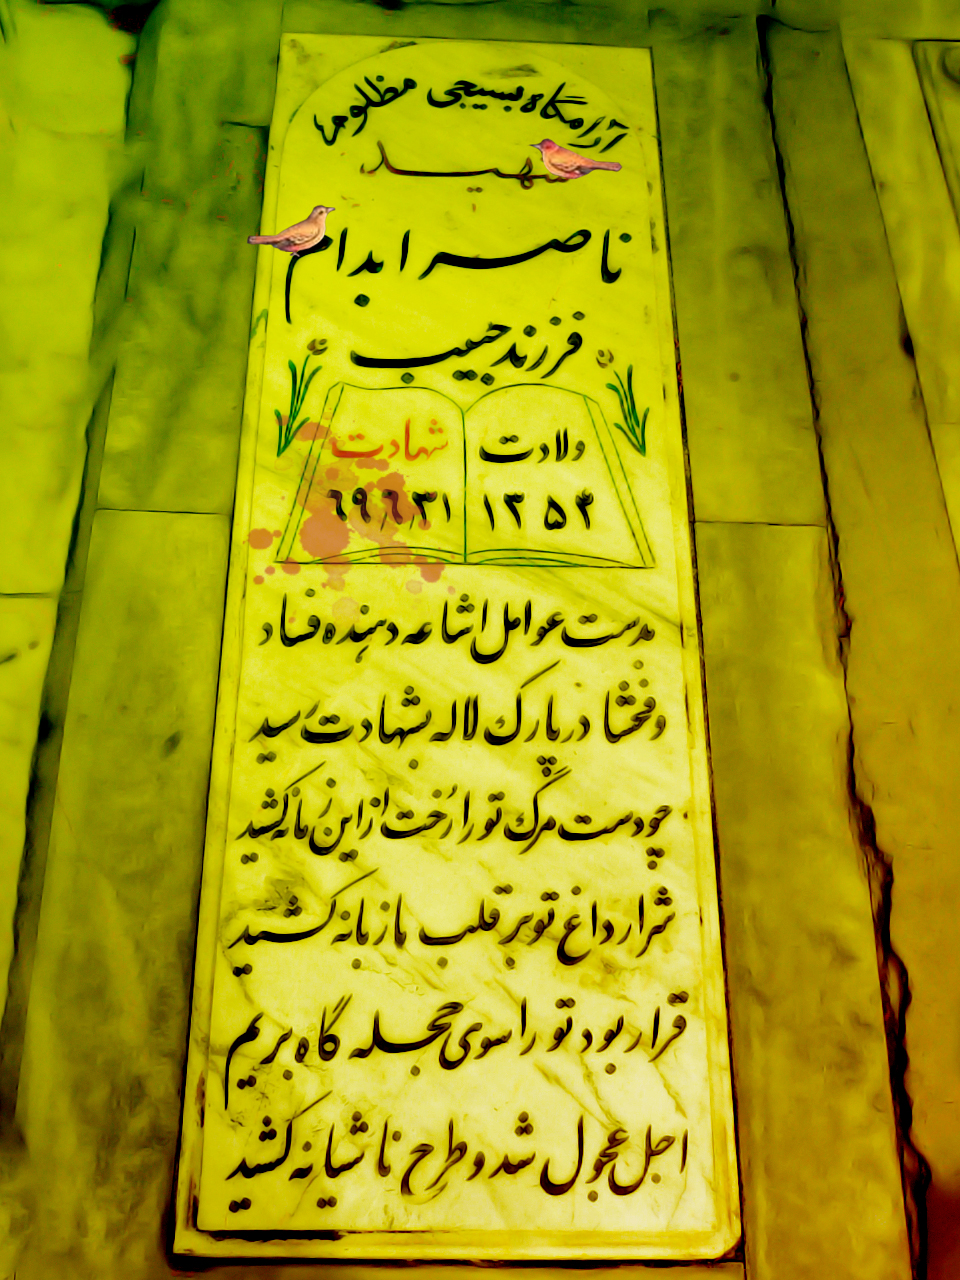 آرامگاه بسیجی مظلوم
شهید
ناصر ابدام
فرزند حبیب
ولادت
شهادت
۱۳۵۴
۶۹٫۶٫۳۱
بدست عوامل اشاعه دهنده فساد
و فحشا در پارک لاله بشهادت رسید
چو دست مرگ تو را رخت از این زمانه کشید
شرار داغ تو بر قلب ما زبانه کشید
قرار بود تو را سوی حجله گاه بریم
اجل عجول شد و طرح ناشیانه کشید